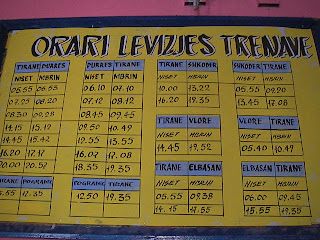 ORARI LEVIZJES TRENAVE
TIRANE DURRES
NISET MBRIN
05.55 06.53
07.25 08.20
08.30 09.28
14.15 15.12
15.42
16.20 17.17
20.00 20.57
DURRES TIRANE
NISET MBRIN
06.10 07.10
07.12 08.12
08.45 09.45
09.50 10.49
12.55 13.55
16.07 17.08
18.35 19.35
POGRADEC TIRANE
12.50 19.35
TIRANE SHKODER
NISET MBRIN
10.00 13.22
16.20 19.35
TIRANE VLORE
NISET MBRIN
14.45 19.52
TIRANE ELBASAN
NISET MBRIN
05.55 09.38
14.15 17.55
SHKODER TIRANE
NISET MBRIN
05.55 09.20
13.45 17.08
VLORE TIRANE
NISET MBRIN
05.40 10.49
ELBASAN TIRANE
NISET MBRIN
06.00 09.45
15.55 19.35